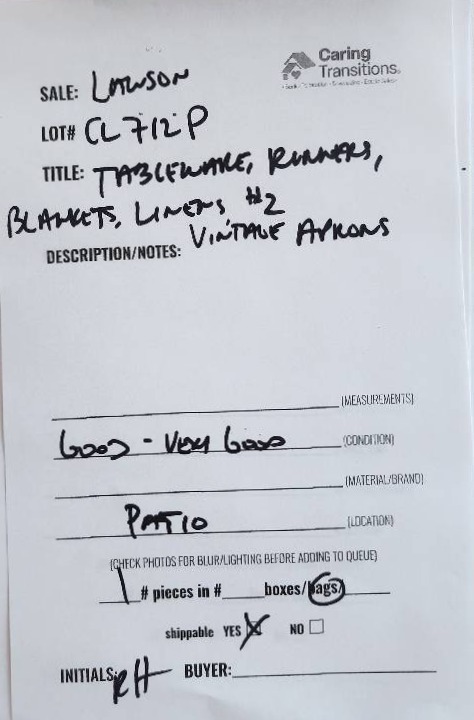 Caring
Transitions®
SALE: LAWSON
LOT# CL712P
TITLE: TABLEWARE, RUNNERS,
BLANKETS, LINENS #2
VINTAGE APRONS
DESCRIPTION/NOTES:
(MEASUREMENTS)
GOOD - VERY GOOD (CONDITION)
(MATERIAL/BRAND)
PATIO (LOCATION)
(CHECK PHOTOS FOR BLUR/LIGHTING BEFORE ADDING TO QUEUE)
1 # pieces in # boxes/bags/
shippable YES X NO
INITIALS: RH BUYER: